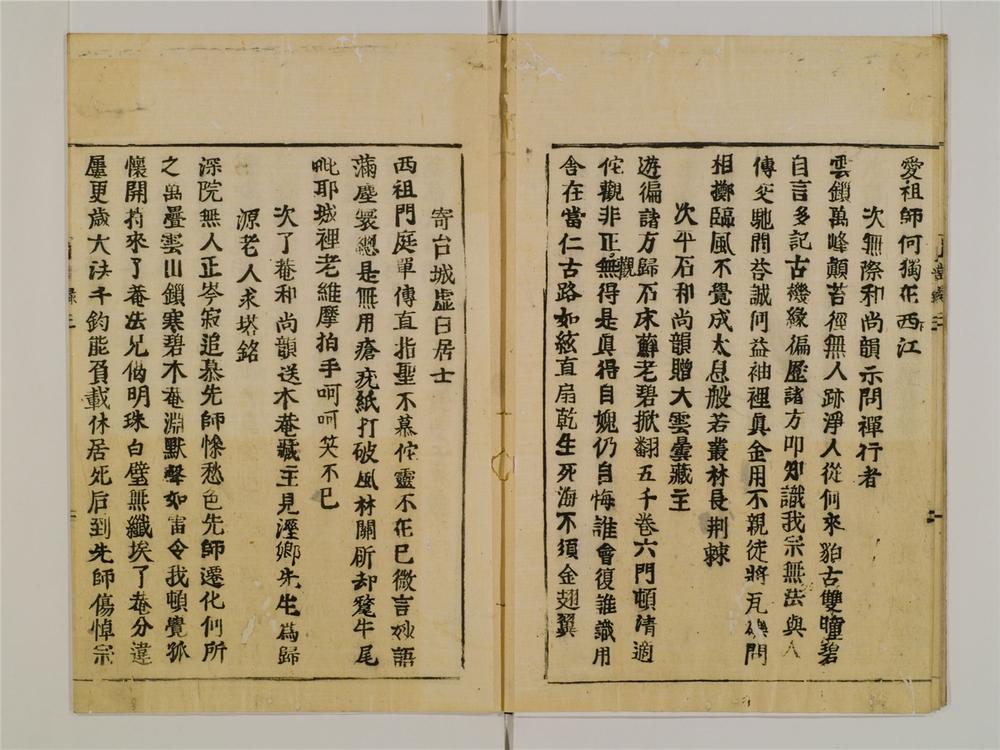 愛祖師何獨在西江
次無際和尚韻示問禪行者
雲鎖萬峰顛苔徑無人跡淨人從何來貌古雙瞳碧
自言多記古機緣徧歷諸方叩知識我宗無法與人
傳交馳問荅誠何益袖裡真金用不親徒將瓦礫問
相擲臨風不覺成太息般若叢林長荆棘
次平石和尚韻贈大雲曇藏主
遊徧諸方歸石床蘚老碧掀翻五千卷六門頓清適
佗觀非正觀無得是真得自媿仍自悔誰會復誰識用
舍在當仁古路如絃直扇乾生死海不須金翅翼
寄台城虛白居士
西祖門庭單傳直指聖不慕佗靈不在已微言妙語
滿塵寰緫是無用瘡疣紙打破風林關斫却鶖牛尾
毗耶城裡老維摩拍手呵呵笑不已
次了菴和尚韻送木菴藏主見溼鄉先生為歸
源老人求塔銘
深院無人正岑寂追慕先師慘愁色先師遷化何所
之萬疊雲山鎖寒碧木菴淵默聲如雷令我頓覺孤
懷開持來了菴法兄偈明珠白璧無纖埃了菴分違
屢更歲大法千鈞能負載休居死后到先師傷悼宗